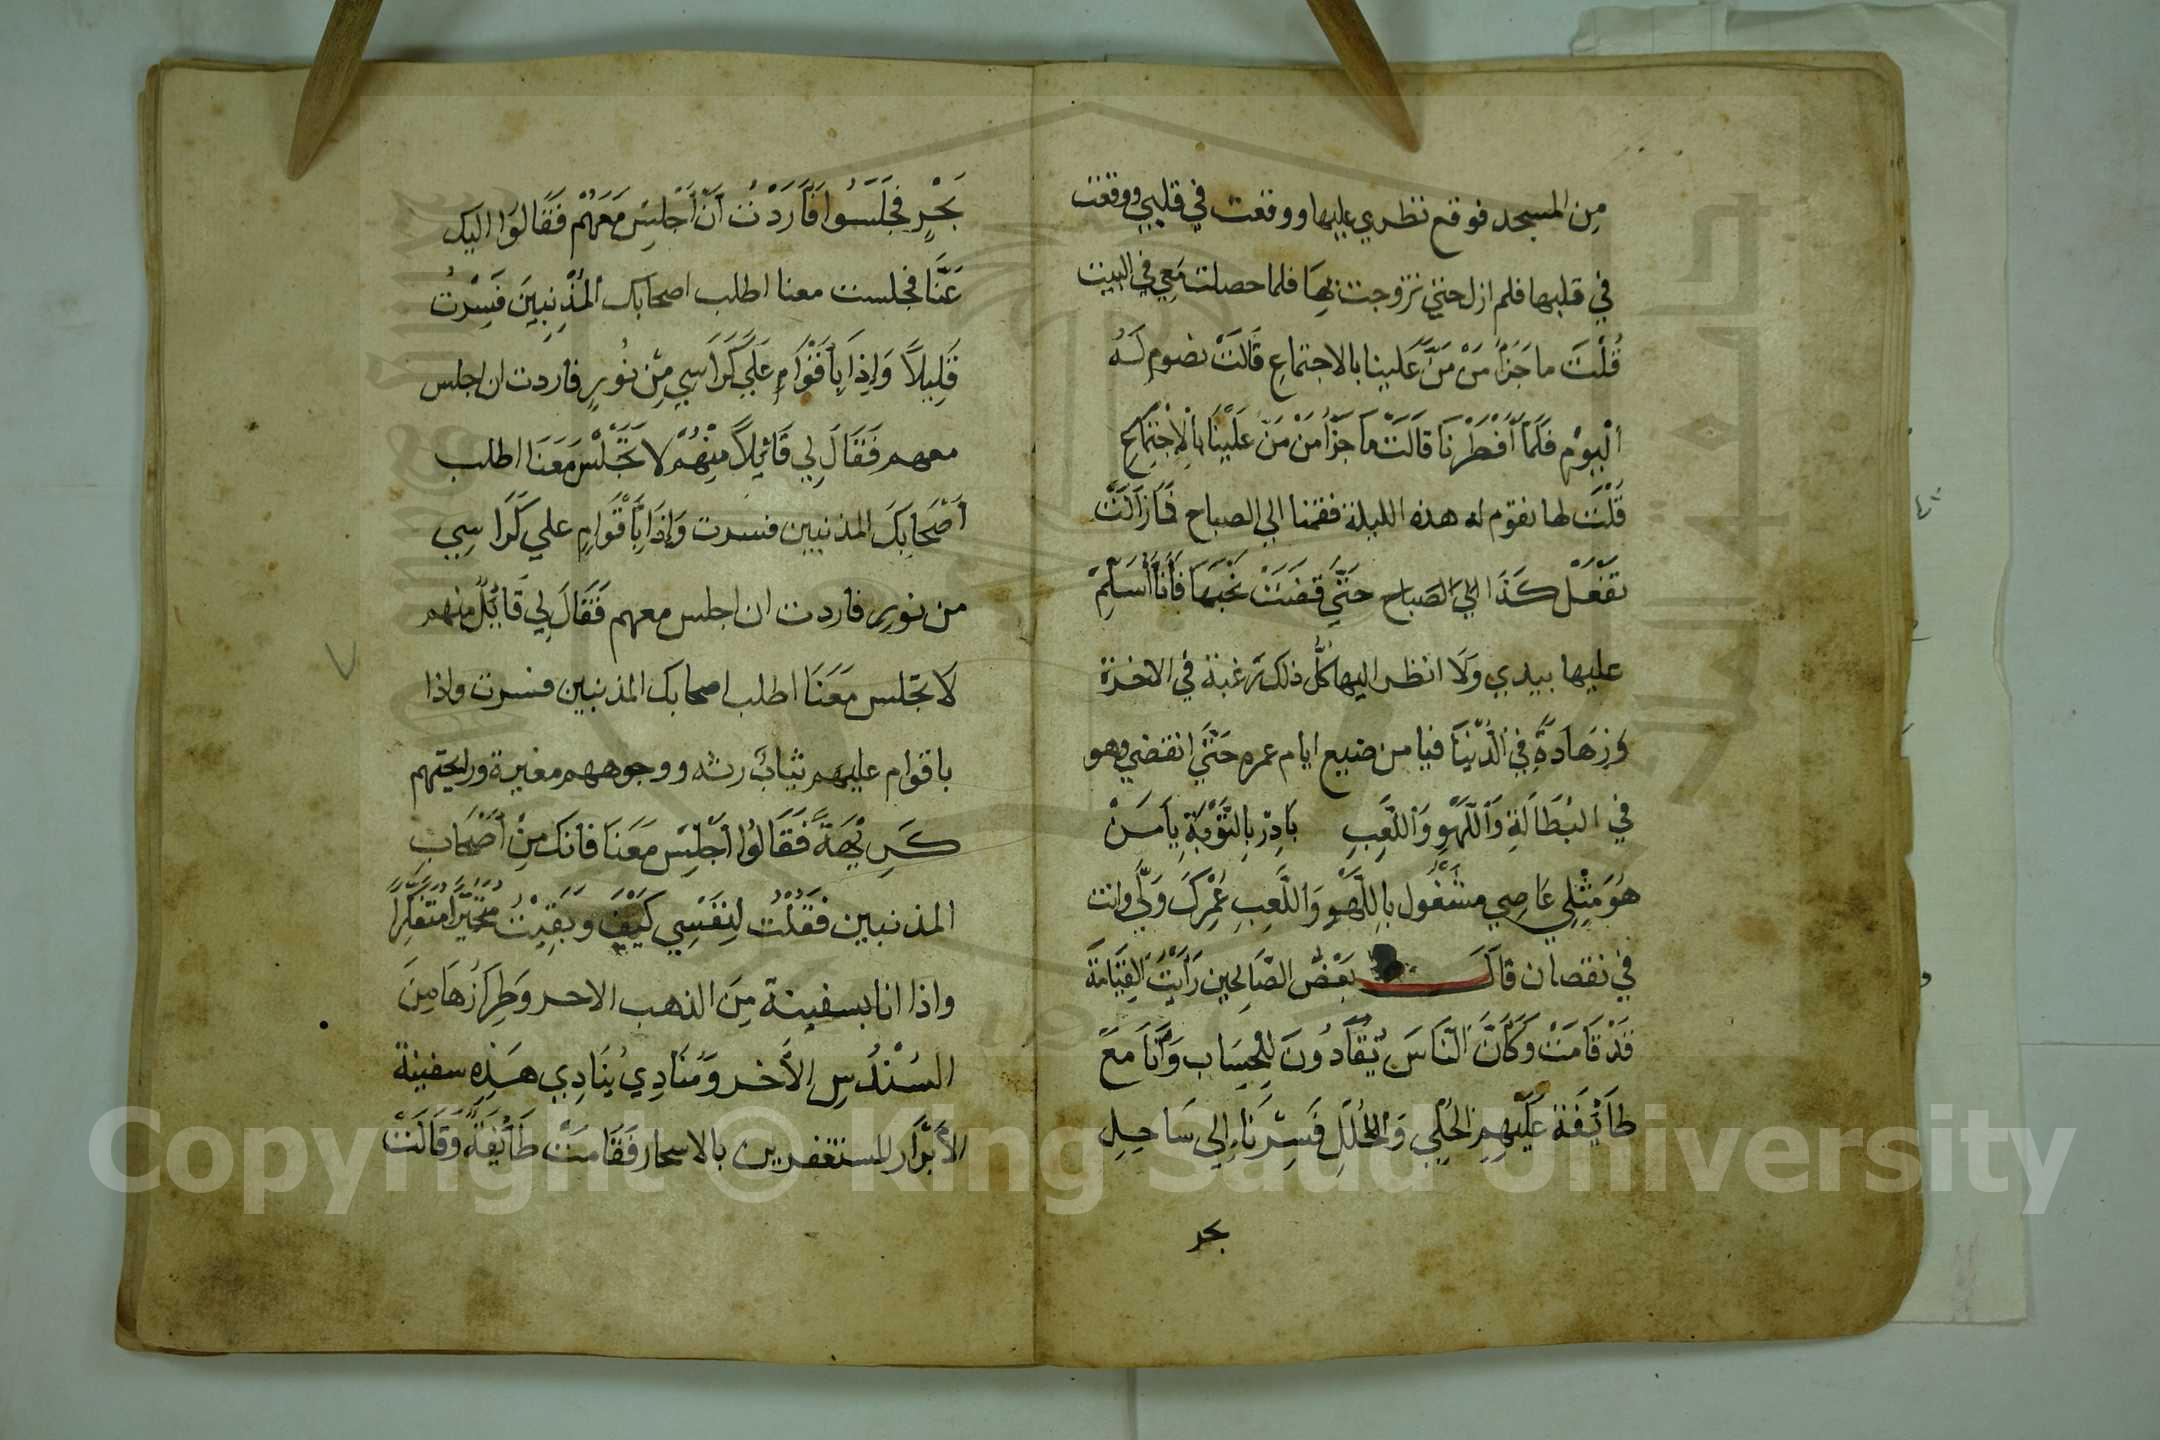 مِن المسجد فوقع نظري عليها ووقعت في قلبي ووقعت
في قلبها فلم ازل حتي تزوجت بِهَا فلما حصلت مَعِي في البيت
قُلْتَ ما جَزَاُ مَنْ مَنَّ عَلينا بالاجتماعِ قَالَتْ نصُوم لَهُ
اَلْيوْم فلَمَّا أَفْطَرْنَا قالَتْ مَا جَزَاُ مَنْ مَنَّ عَلَيْنَا بِالْاِجْتِمَاعِ
قَلْتَ لها نقوم له هذه الليلة فقمنا الي الصباح فَمَا زَالَتْ
تَفْعَلْ كَذَا اِلَيَ الصَباحِ حَتَّي قَضَتْ نَحْبَهَا فَأَنَا أُسَلِّمْ
عليها بيدي وَلَا انظر اليها كُلُّ ذلك رغبة في الاخرة
وَزِهَادَةً في الدُّنْيَا فيا من ضيع ايام عمره حَتَّي انقضي وهو
في البُطَالَةِ وَاَللَّهْوِ وَاللَّعِبِ بَادِرْ بِالتَّوْبَةِ يَا مَنْ
هُوَ مِثْلِي عَاصِي مشْغُول بِاللَّهْوِ وَاللَّعِبِ عُمْرِكَ وَلَّي وانت
في نقصان قَالَ بَعْضُ الصَّالحين رَأَيْتُ الْقِيَامَةَ
قَدْ قَامَتْ وَكَأَنَّ النَّاسَ يُقَادُونَ لِلْحِسَاب وَأَنَا مَعَ
طَائِفَة عَلَيْهِمْ الحُلِي وَالْحُلَلِ فَسِرْنَا إِلي سَاحِلِ
بحر
بَحْرٍ فَجَلَسُوا فَأَرَدْتُ اَنْ أَجْلِسَ مَعَهُمْ فَقَالُوا اليك
عَنَّا فجلست معنا اطلب اصحابك اَلْمُذْنِبِينَ فَسِرْتُ
قَلِيلاً وَإِذَا بِأَقْوَامٍ عَلَي كَرَاسِي مِنْ نُورٍ فاردت ان اجلس
معهم فَقَالَ لِي قَائِلاً مِنْهُمْ لاَ تَجْلِسْ مَعَنَا اطلب
أَصْحَابِكَ المذنبين فسرت وَإِذَا بِأَقْوَامٍ علي كَرَاسِي
من نور فاردت ان اجلس معهم فَقَالَ لِي قَائِلٌ منهم
لَا تجلس مَعَنَا اطلب اصحابك المذنبين فسرت واذا
باقوام عليهم ثيابٌ رثه ووجوههم مغبرة وريحتهم
كَرِيْهَةً فَقَالُوا اَجْلِسْ مَعَنَا فانك مِنْ أَصْحَابِ
المذنبين فَقُلْتُ لِنَفْسِي كَيْفَ وَبَقِيْتُ مُتَحَيِّراً مُتَفَكِّراً
واذا انا بسفينة مِنَ الذهب الاحمر وَطِرَازُهَا مِنَ
السُنْدُسِ الأَخضر وَمُنَادِي يُنَادِي هَذِهِ سفينة
الأَبْرَار المستغفرين بالاسحار فَقَامَتْ طَائِفَةٌ وَقَالَتْ
Copyright © King Saud University